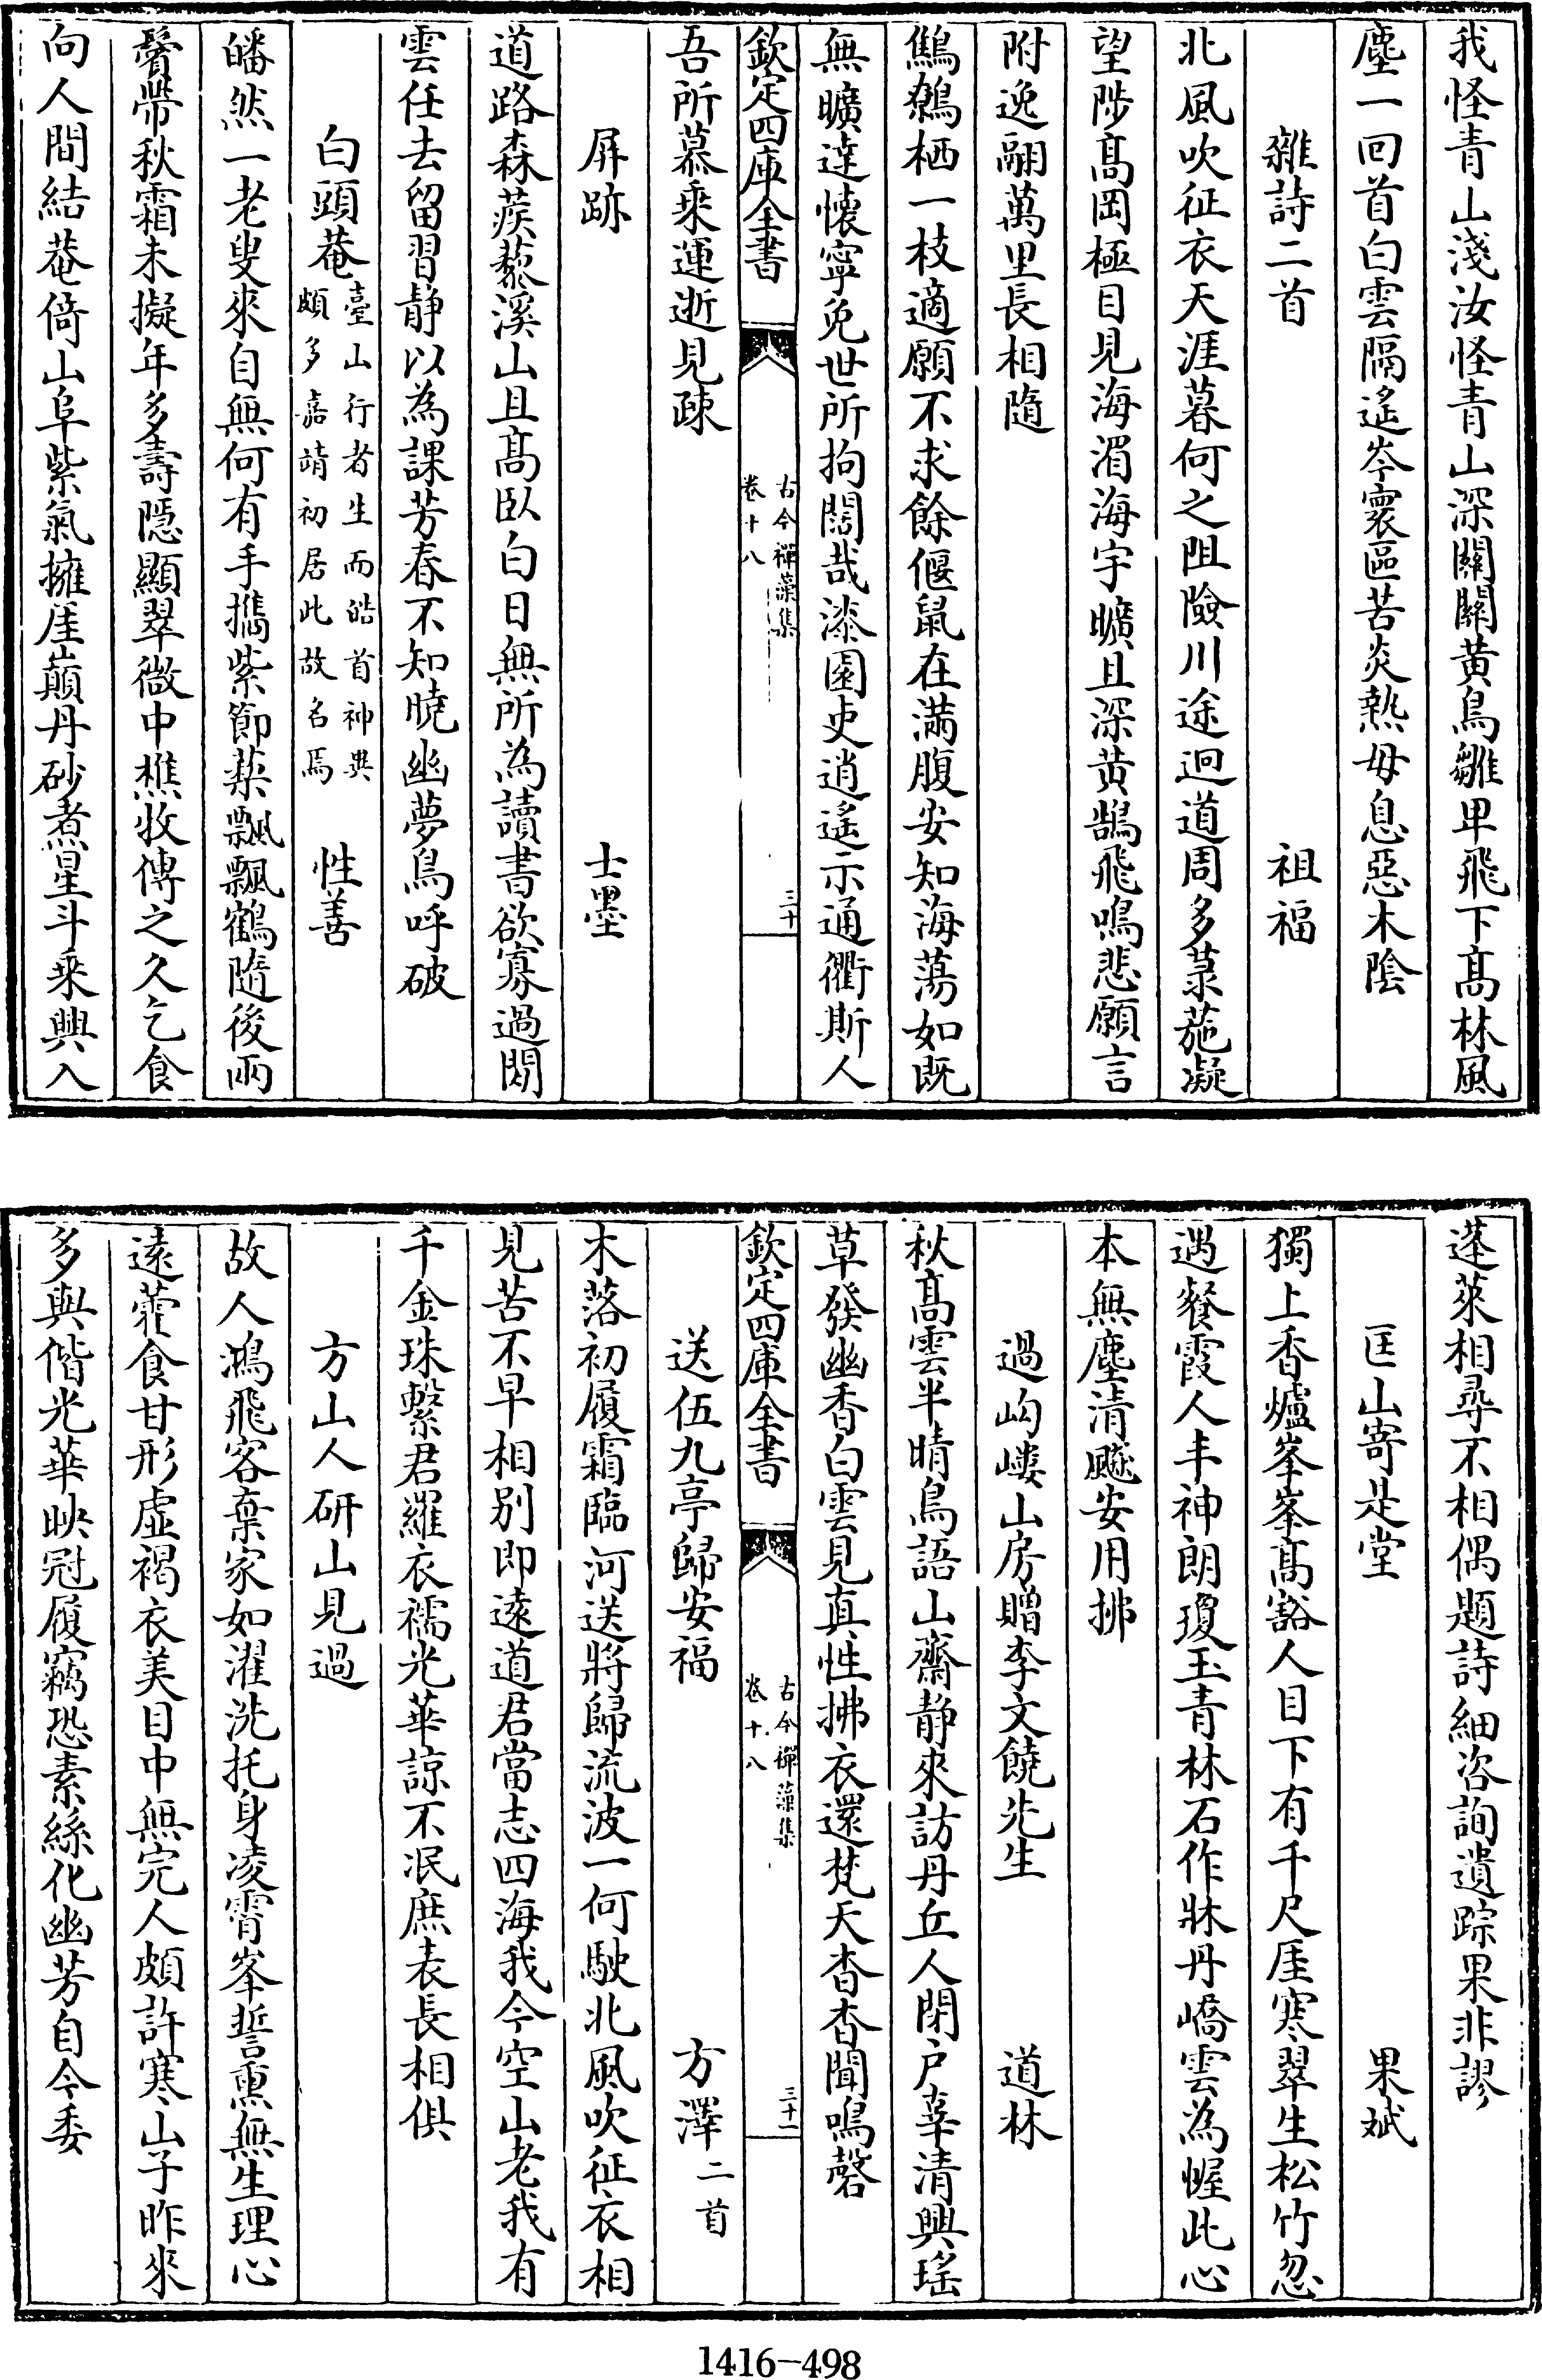 我怪青山淺汝怪青山深關關黄鳥雛卑飛下髙林風
塵一回首白雲隔遙岑寰區苦炎熱毋息惡木陰
雜詩二首　祖福
北風吹征衣天涯暮何之阻險川途迥道周多菉葹凝
望陟髙岡極目見海湄海宇曠且深黄鵠飛鳴悲願言
附逸翮萬里長相隨
鷦鷯栖一枝適願不求餘偃鼠在滿腹安知海蕩如既
無曠達懷寧免世所拘闊哉漆園吏逍遙示通衢斯人
欽定四庫全書
古今禪藻集
卷十八
三十
吾所慕乘運逝見疎
屏跡　士墨
道路森蒺藜溪山且髙臥白日無所為讀書欲寡過閒
雲任去留習静以為課芳春不知曉幽夢鳥呼破
白頭菴臺山行者生而皓首神與
頗多嘉靖初居此故名焉　性善
皤然一老叟來自無何有手攜紫節蔾飄飄鶴隨後兩
鬢帶秋霜未擬年多壽隱顯翠微中樵牧傳之久乞食
向人間結菴倚山阜紫氣擁厓巔丹砂煮星斗乘興入
蓬萊相尋不相偶題詩細咨詢遺踪果非謬
匡山寄是堂　果斌
獨上香爐峯峯髙豁人目下有千尺厓寒翠生松竹忽
遇餐霞人丰神朗瓊玉青林石作牀丹嶠雲為幄此心
本無塵清飈安用拂
過岣嶁山房贈李文饒先生　道林
秋髙雲半晴鳥語山齋静來訪丹丘人閉户幸清興瑤
草發幽香白雲見真性拂衣還梵天杳杳聞鳴磬
欽定四庫全書
古今禪藻集
卷十八
三十一
送伍九亭歸安福　方澤二首
木落初履霜臨河送將歸流波一何駛北風吹征衣相
見苦不早相别即逺道君當志四海我今空山老我有
千金珠繫君羅衣襦光華諒不泯庶表長相俱
方山人研山見過
故人鴻飛客棄家如濯洗托身凌霄峯誓熏無生理心
逺藿食甘形虛褐衣美目中無完人頗許寒山子昨來
多與偕光華映冠履竊恐素絲化幽芳自今委
1416-498